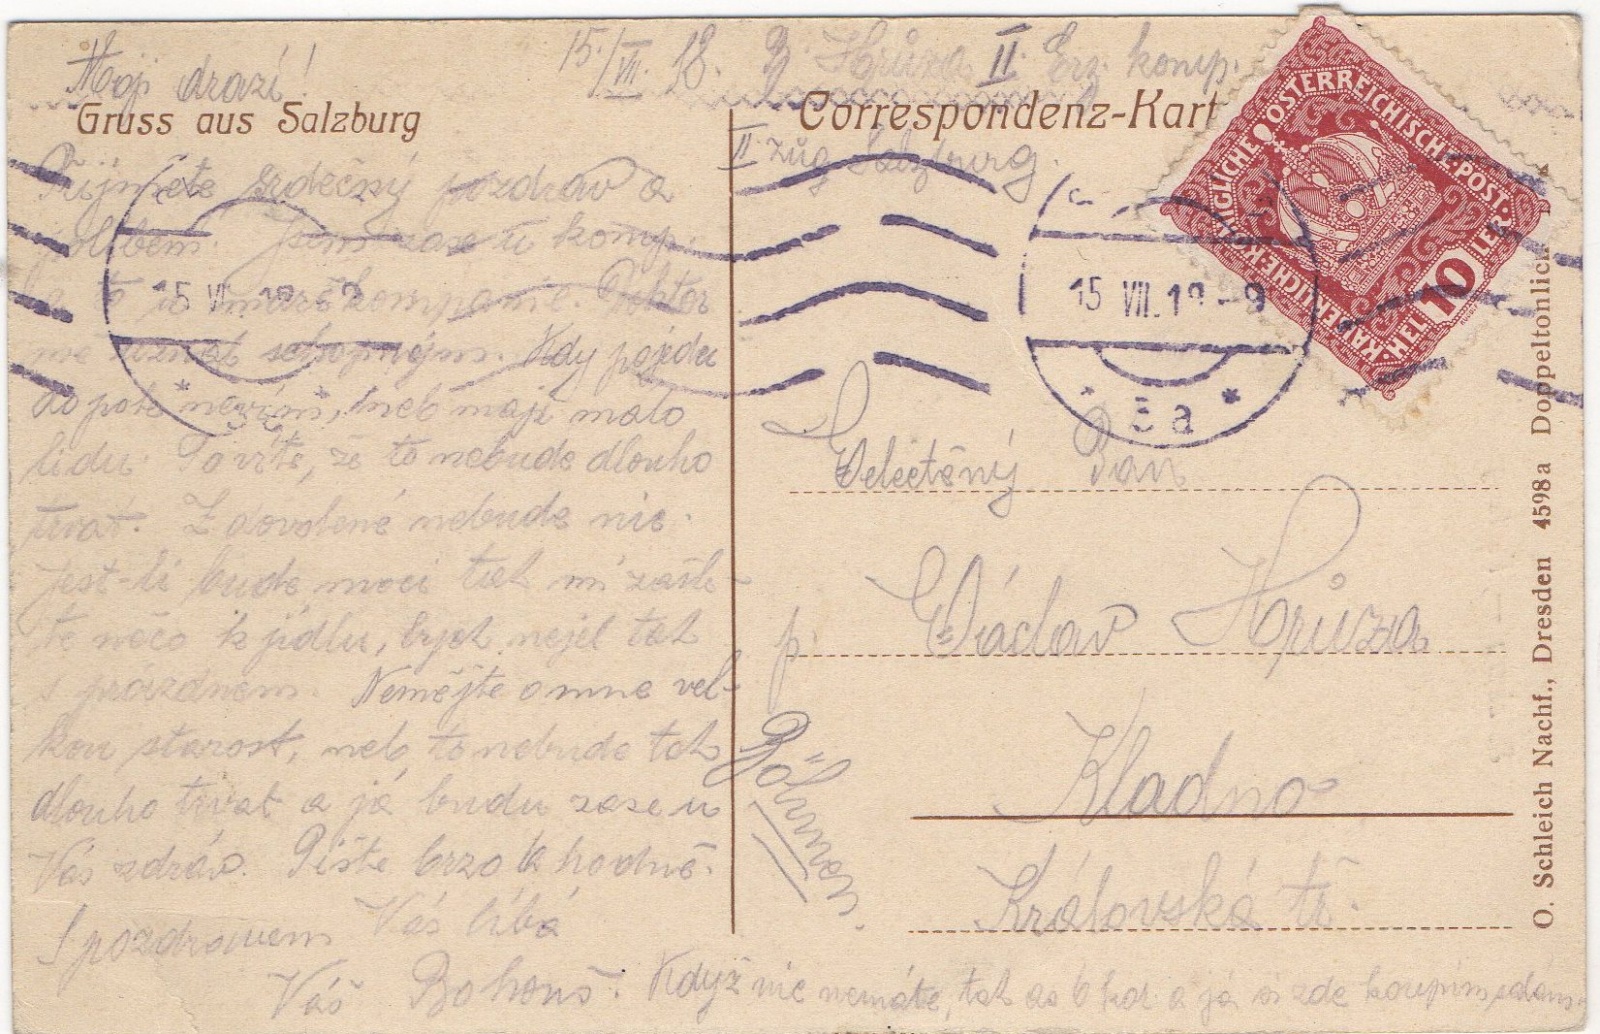 Moji drazí!
15./VII. 18. Hrůza II Erz. komp.
Gruss aus Salzburg
Correspondenz-Kart
II zug Salzburg.
KAISERLICHE KÖNIGLICHE ÖSTERREICHISCHE POST
10 HELLER
15 VII 18 - 9
15 VII. 18 - 9
* 5a *
Přijměte srdečný pozdrav a
políbení. Jsem zase u komp.
a to u marškompanie. Doktor
mě uznal schopným. Kdy pojedu
do pole nevím, neb mají málo
lidu. Povíte, že to nebude dlouho
trvat. Z dovolené nebude nic.
Jest-li bude moci tak mi zašle-
te něco k jídlu, bych nejel tak
s prázdnem. Nemějte o mne vel-
kou starost, neb to nebude tak
dlouho trvat a já budu zase u
Vás zdráv. Pište brzo a hodně.
S pozdravem Vás líbá
Váš Bohouš. Když nic nemáte, tak as 6 kor a já si zde koupím
Velectěný Pan
p. Václav Hrůza
Kladno
Královská tř.
Böhmen.
O. Schleich Nachf., Dresden 4598a Doppeltonlich